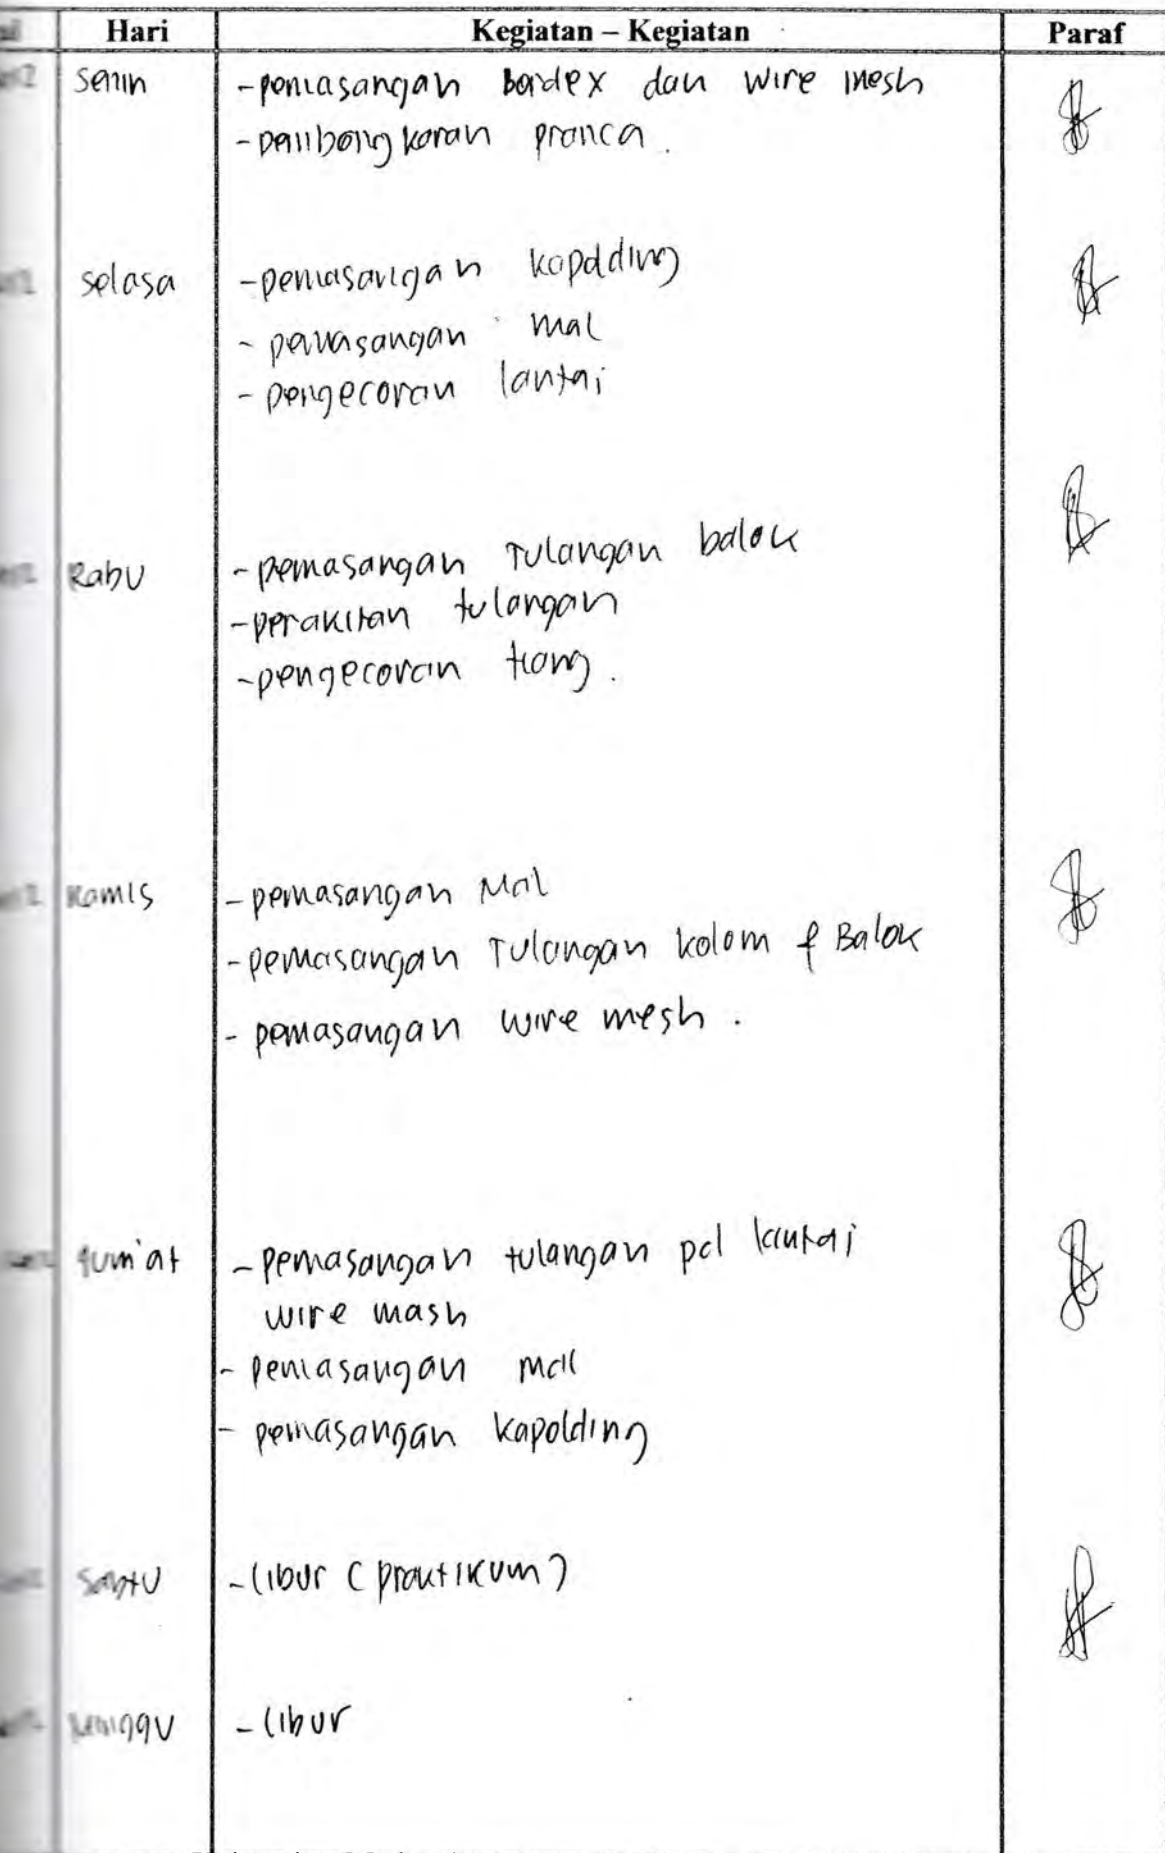 Hari Kegiatan – Kegiatan Paraf
Senin -pemasangan bondex dan wire mesh
-pembongkaran pranca.
Selasa -pemasangan kapolding
- pemasangan mal
- pengecoran lantai
Rabu -pemasangan Tulangan balok
-perakitan tulangan
-pengecoran tiang.
Kamis -pemasangan Mal
-pemasangan Tulangan kolom & Balok
- pemasangan wire mesh.
Jum'at -pemasangan tulangan pd lantai
wire mash
- pemasangan mal
- pemasangan kapolding
Sabtu -libur (praktikum)
Minggu -libur